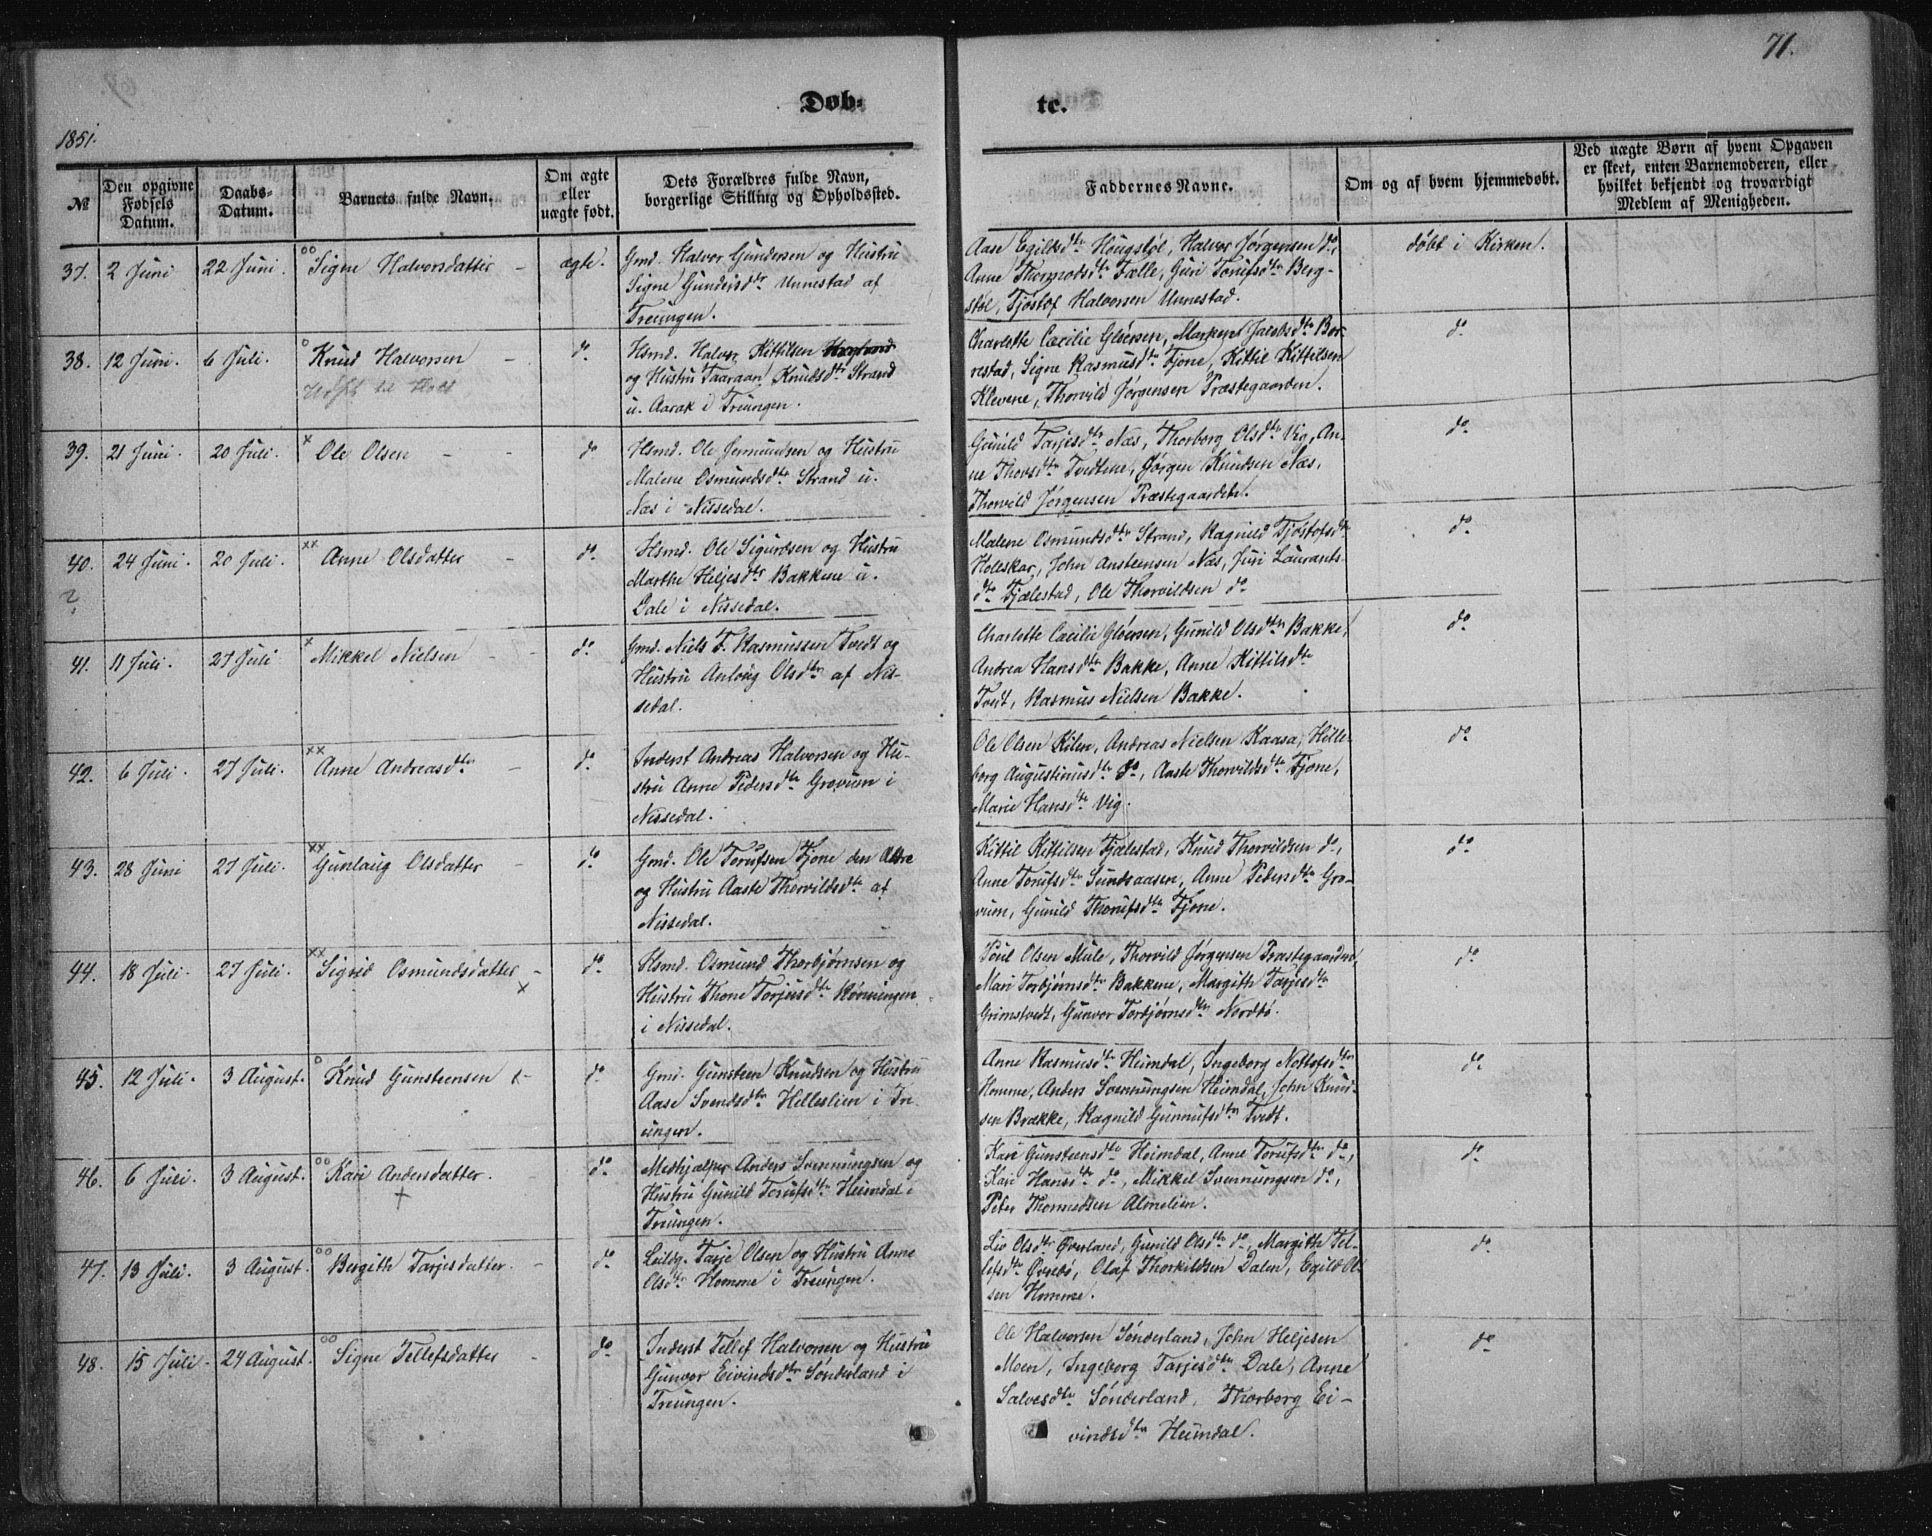 71.
Døb-
te.
1851.
№
Den opgivne Fødsels Datum.
Daabs-Datum.
Barnets fulde Navn.
Om ægte eller uægte født.
Dets Forældres fulde Navn, borgerlige Stilling og Opholdssted.
Faddernes Navne.
Om og af hvem hjemmedøbt.
Ved uægte Børn af hvem Opgaven er skeet, enten Barnemoderen, eller hvilket bekjendt og troværdigt Medlem af Menigheden.
37. 2 Juni 22 Juni. °° Signe Halvorsdatter - ægte.
Gmd. Halvor Gundersen og Hustru
Signe Gundersdtr Unnestad af
Treungen.
Aase Egilksdtr Hougstøl, Halvor Jørgensen do,
Anne Thormodsdtr Fælle, Guri Torufsdtr Berg-
støl, Tjøstof Halvorsen Unnestad.
døbt i Kirken.
38. 12 Juni. 6 Juli. ° Knud Halvorsen - do.
Hsmd. Halvor Kittilsen
og Hustru Taaraan Knudsdtr Strand
u. Aarak i Treungen.
Charlotte Cæcilie Gløersen, Marken Jacobsdtr Bor-
restad, Signe Rasmusdtr Fjone, Kittil Kittilsen
Klevene, Thorvild Jørgensen Præstegaarden.
do
39. 21 Juni. 20 Juli. x Ole Olsen - - do
Hsmd. Ole Jermundsen og Hustru
Malene Osmundsdtr Strand u.
Næs i Nissedal.
Gunild Tarjesdtr Næs, Thorborg Olsdtr Vig, An-
ne Thorsdtr Tvedtene, Jørgen Knudsen Næs,
Thorvild Jørgensen Præstegaarden.
do
40. 24 Juni. 20 Juli. xx Anne Olsdatter - do.
?
Hsmd. Ole Sigurdsen og Hustru
Marthe Heljesdtr Bakkene u.
Dale i Nissedal.
Malene Osmundsdtr Strand, Ragnild Tjøstofsdtr
Holeskar, John Anstensen Næs, Juri Laurants-
dtr Fjælestad, Ole Thorvildsen do
do
41. 11 Juli. 27 Juli x Mikkel Nielsen - - do.
Gmd. Niels T. Rasmussen Tvedt og
Hustru Anloug Olsdtr af Nis-
sedal.
Charlotte Cæcilie Gløersen, Gunild Olsdtr Bakke,
Andrea Hansdtr Bakke, Anne Kittilsdtr
Tvedt, Rasmus Nielsen Bakke.
do
42. 6 Juli. 27 Juli. xx Anne Andreasdtr - do.
Inderst Andreas Halvorsen og Hu-
stru Anne Pedersdtr Grovum i
Nissedal.
Ole Olsen Kilen, Andreas Nielsen Kaasa, Hille-
borg Augustinusdtr do, Aaste Thorvildsdtr Fjone,
Marie Hansdtr Vig.
do
43. 28 Juni 27 Juli. xx Gunlaug Olsdatter - do
Gmd. Ole Torufsen Fjone den Ældre
og Hustru Aaste Thorvildsdtr af
Nissedal.
Kittil Kittilsen Fjælestad, Knud Thorvildsen do,
Anne Torufsdtr Sundsaasen, Anne Pedersdtr Gro-
vum, Gunild Thorufsdtr Fjone.
do
44. 18 Juli. 27 Juli. xx Sigrid Osmundsdatter - x do.
Hsmd. Osmund Thorbjørnsen og
Hustru Thone Torjusdtr Rønningen
i Nissedal.
Poul Olsen Mule, Thorvild Jørgensen Præstegaarden,
Mari Torbjørnsdtr Bakkene, Margith Tarjesdtr
Grimstvedt, Gunvor Torbjørnsdtr Nordbø.
do
45. 12 Juli. 3 August. ° Knud Gunsteensen x- do.
Gmd. Gunsteen Knudsen og Hustru
Aase Svendsdtr Helleslien i Tre-
ungen.
Anne Rasmusdtr Heimdal, Ingeborg Notlofsdtr
Homme, Anders Svennungsen Heimdal, John Knud-
sen Brække, Ragnild Gunnufsdtr Tvedt.
do
46. 6 Juli. 3 August. °° Kari Andersdatter. - do
+
Medhjælper Anders Svennungsen og
Hustru Gunild Torufsdtr Heimdal i
Treungen.
Kari Gunsteensdtr Heimdal, Anne Torufsdtr do,
Kari Hansdtr do, Mikkel Svennungsen do,
Peter Thormodsen Almelien.
do
47. 13 Juli. 3 August. °° Birgith Tarjesdatter. - do.
Leildg. Tarje Olsen og Hustru Anne
Olsdtr Homme i Treungen.
Liv Olsdtr Øverland, Gunild Olsdtr do, Margith Tel-
lefsdtr Øvrebø, Olaf Thorkildsen Dalen, Egild Ol-
sen Homme.
do
48. 15 Juli. 24 August. °° Signe Tellefsdatter - do.
Inderst Tellef Halvorsen og Hustru
Gunvor Eivindsdtr Sønderland i
Treungen.
Ole Halvorsen Sønderland, John Heljesen
Moen, Ingeborg Tarjesdtr Dale, Anne
Salvesdtr Sønderland, Thorborg Ei-
vindsdtr Heimdal.
do